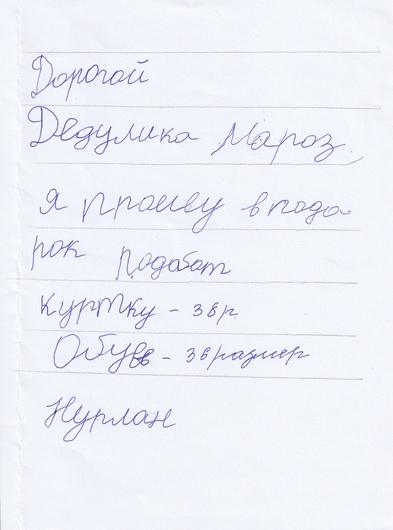 Дорогой
Дедулика Мароз,
я прошу в пода-
рок подобат
куртку - 38р
Обувь - 36размер
Нурлан